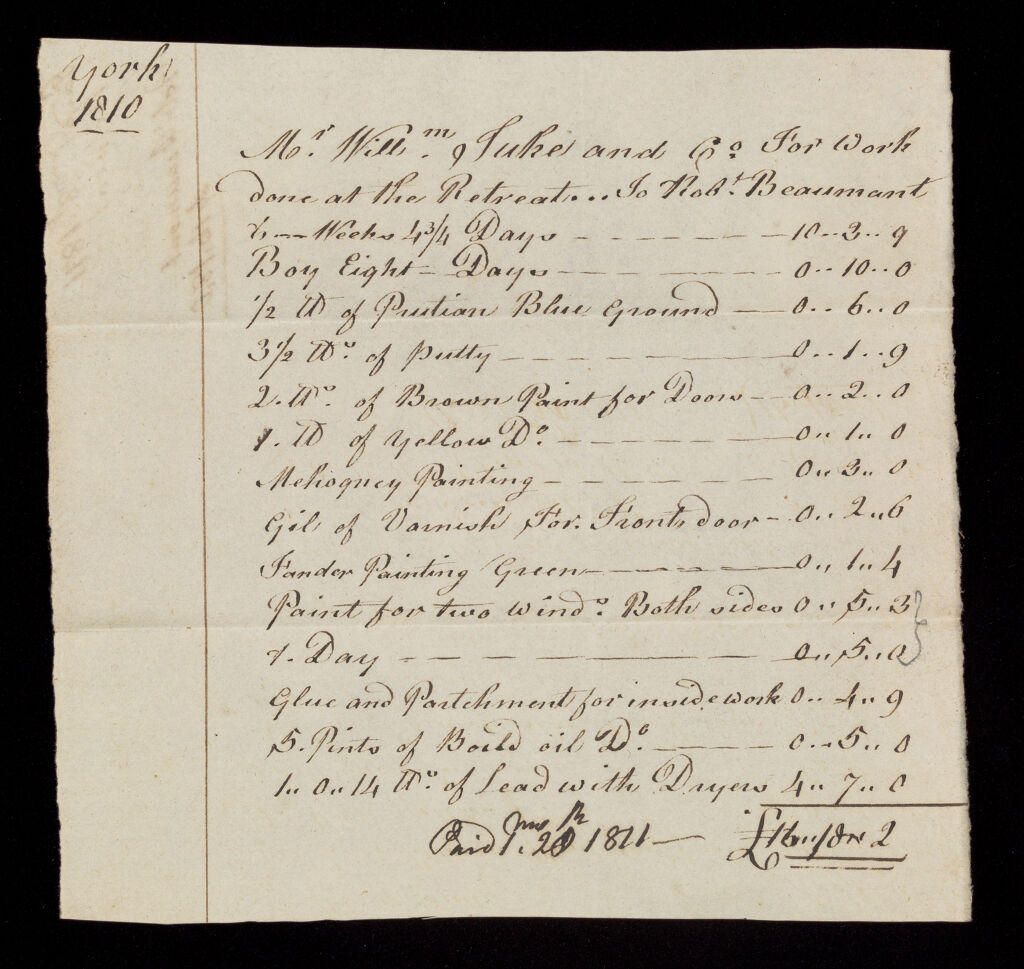 York
1810
Mr. Willm. Tuke and Co. For Work
done at the Retreat... To Robt. Beaumant
6 -- Weeks 4 3/4 Days - - - - - 10 .. 3 .. 9
Boy Eight - Days - - - - - 0 .. 10 .. 0
1/2 lb of Prutian Blue Ground - 0 .. 6 .. 0
3 1/2 lbs. of putty - - - - - 0 .. 1 .. 9
2. lbs. of Brown Paint for Doors - 0 .. 2 .. 0
1. lb of Yellow Do. - - - - - 0 .. 1 .. 0
Mehogney Painting - - - - - 0 .. 3 .. 0
Gil of Varnish For. Front door - 0 .. 2 .. 6
Fander Painting Green - - - - 0 .. 1 .. 4
Paint for two winds. Both sides 0 .. 5 .. 3
1. Day - - - - - 0 .. 5 .. 0
Glue and Partchment for inside work 0 .. 4 .. 9
5. Pints of Boild oil Do. - - - 0 .. 5 .. 0
1 .. 0 .. 14 lbs. of Lead with Dryers 4 .. 7 .. 0
Paid 1 mo 20th 1811 - £16 .. 18 .. 2